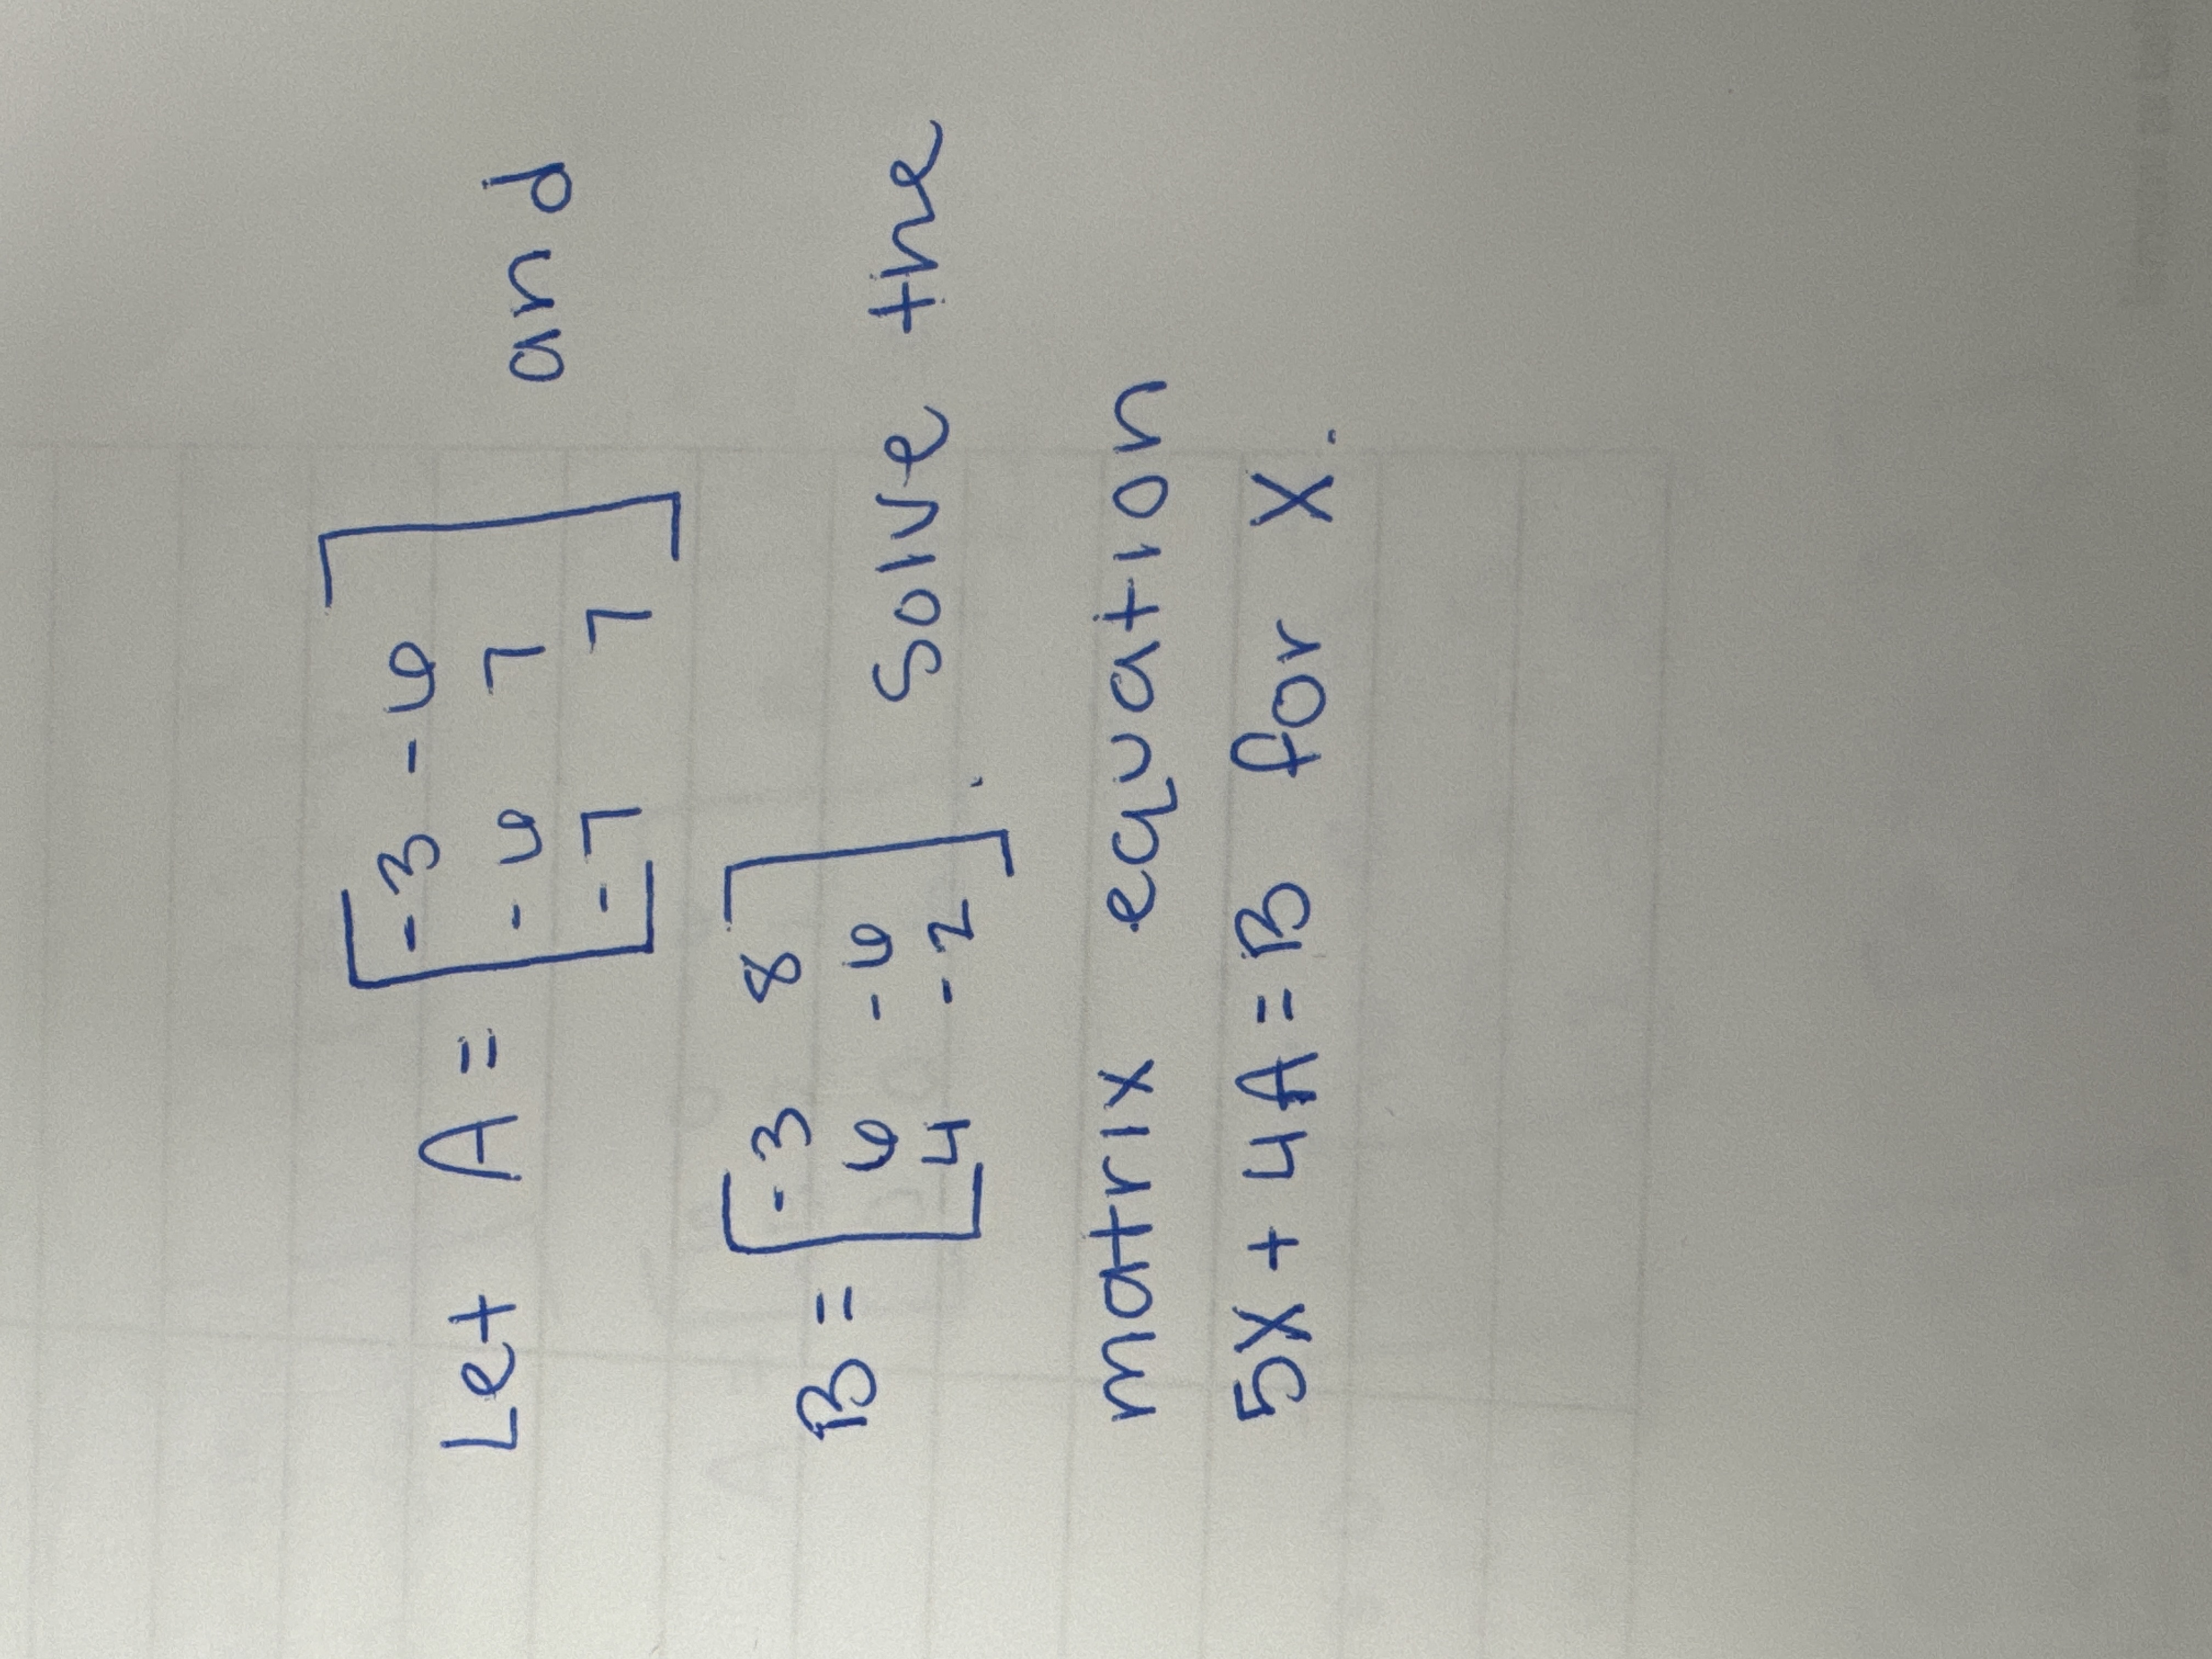 Let A = [-3 -6
-6 7
-7 7] and
B = [-3 8
6 -6
4 -2]. Solve the
matrix equation
5X + 4A = B for X.